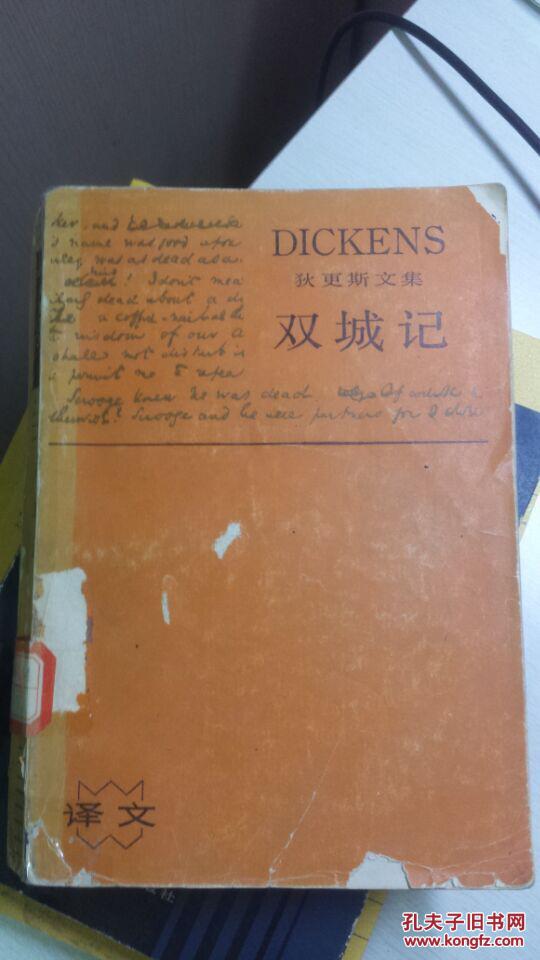 ker, and
's name was good upon
was as dead as a
! I don't mea
dead about a d
a coffin-nail as the
wisdom of our a
shall not disturb i
permit me to repea
Scrooge knew he was dead. Of course h
Scrooge and he were partners for I don
DICKENS
狄更斯文集
双城记
译文
社
孔夫子旧书网
www.kongfz.com